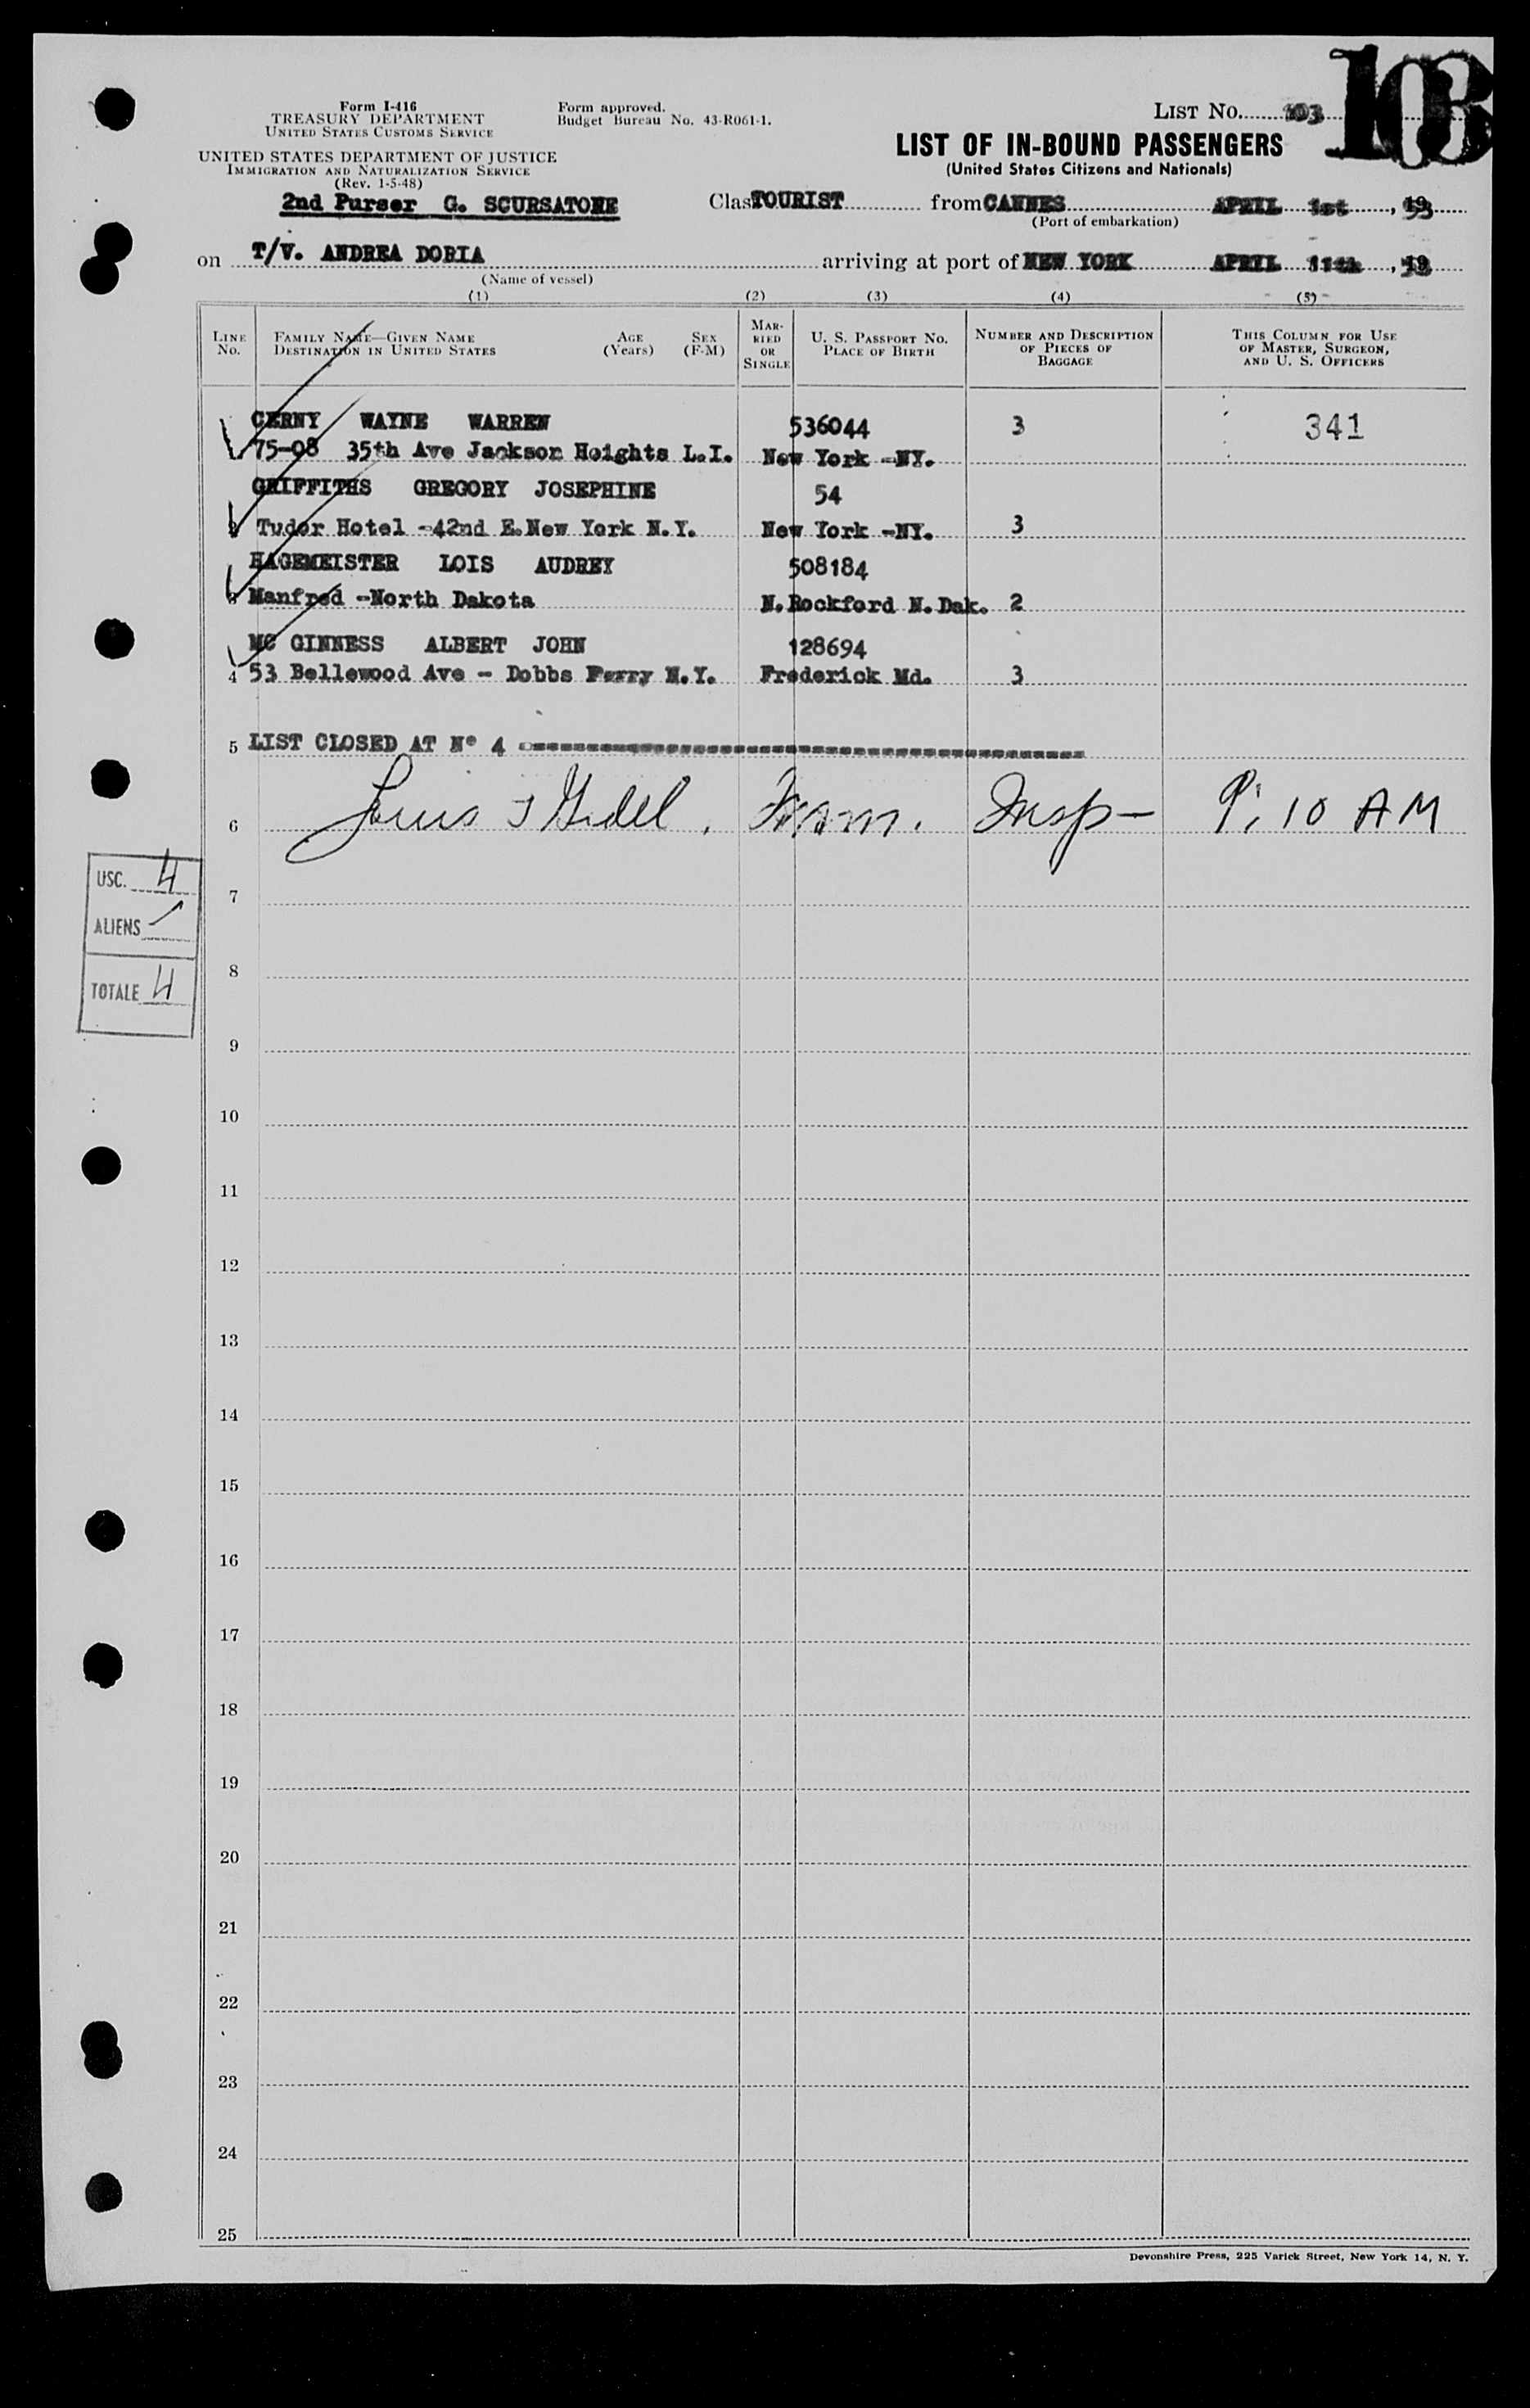 103
Form I-416
TREASURY DEPARTMENT
UNITED STATES CUSTOMS SERVICE
Form approved.
Budget Bureau No. 43-R061-1.
LIST No. 103
UNITED STATES DEPARTMENT OF JUSTICE
IMMIGRATION AND NATURALIZATION SERVICE
(Rev. 1-5-48)
LIST OF IN-BOUND PASSENGERS
(United States Citizens and Nationals)
2nd Purser G. SCURSATONE
Clas TOURIST from CANNES APRIL 1st, 53
(Port of embarkation)
on T/V. ANDREA DORIA arriving at port of NEW YORK APRIL 11th, 53
(Name of vessel)
(1) (2) (3) (4) (5)
LINE No.
FAMILY NAME—GIVEN NAME
DESTINATION IN UNITED STATES
AGE (Years)
SEX (F-M)
MAR-RIED OR SINGLE
U. S. PASSPORT No.
PLACE OF BIRTH
NUMBER AND DESCRIPTION OF PIECES OF BAGGAGE
THIS COLUMN FOR USE OF MASTER, SURGEON, AND U. S. OFFICERS
CERNY WAYNE WARREN 536044 3 341
75-08 35th Ave Jackson Heights L.I. New York -NY.
GRIFFITHS GREGORY JOSEPHINE 54
Tudor Hotel -42nd E.New York N.Y. New York -NY. 3
HAGEMEISTER LOIS AUDREY 508184
Manfred -North Dakota N.Rockford N.Dak. 2
MC GINNESS ALBERT JOHN 128694
4 53 Bellewood Ave - Dobbs Ferry N.Y. Frederick Md. 3
5 LIST CLOSED AT Nº 4
6 Louis Insp- 9:10 AM
USC. 4
ALIENS /
TOTALE 4
7
8
9
10
11
12
13
14
15
16
17
18
19
20
21
22
23
24
25
Devonshire Press, 225 Varick Street, New York 14, N. Y.